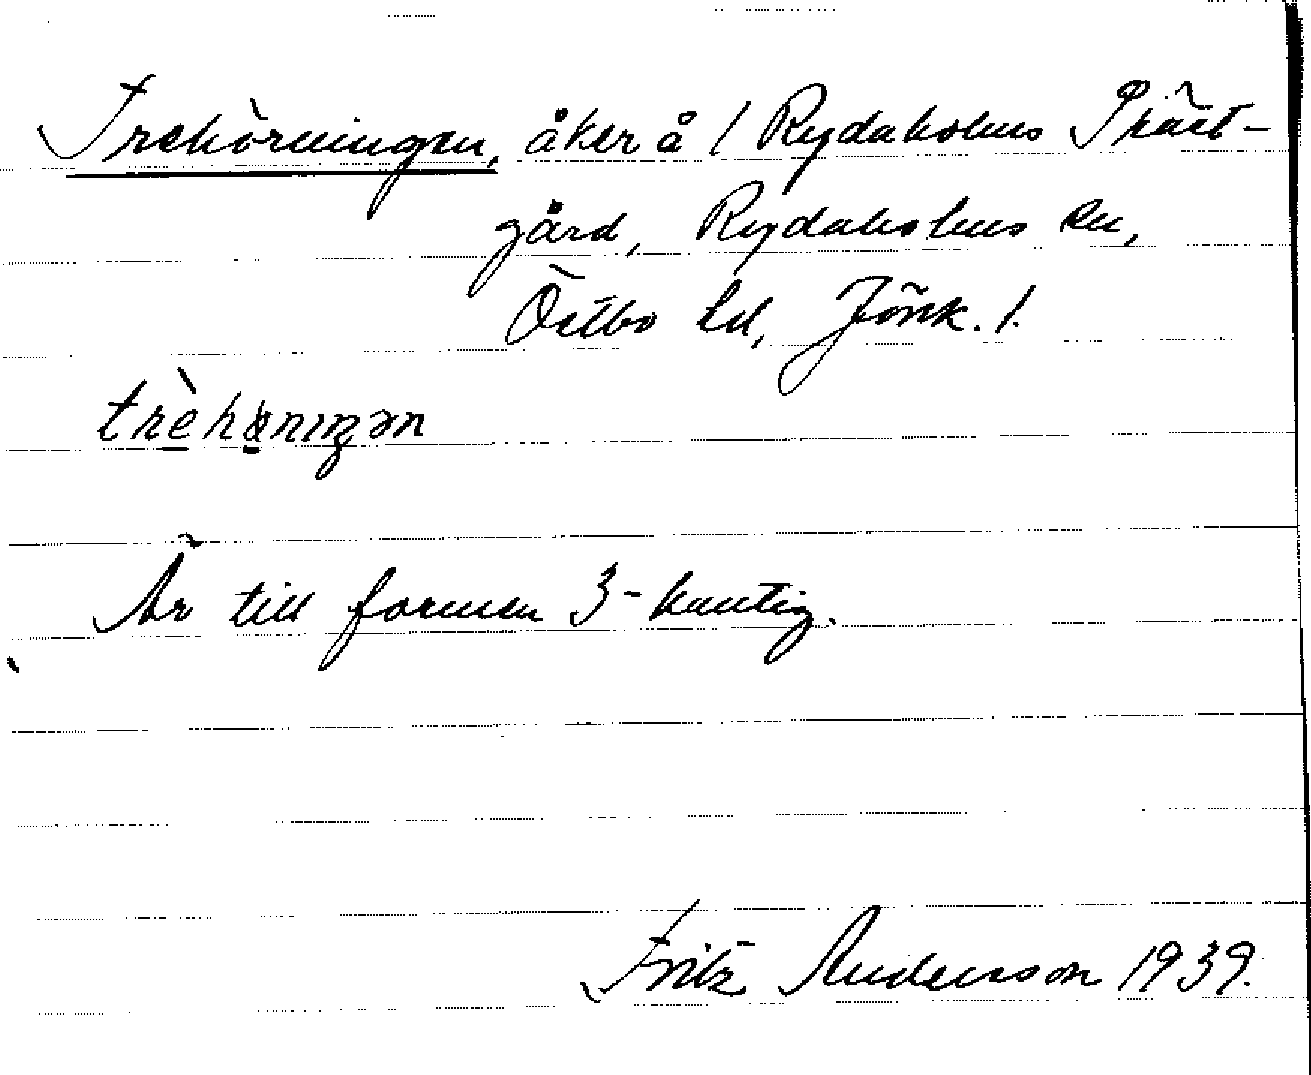 Trehörningen, åker å 1 Rydaholms Präst-
gård, Rydaholms sn,
Östbo hd, Jönk. l.
trèhønıŋən
Är till formen 3-kantig.
Fritz Anderson 1939.